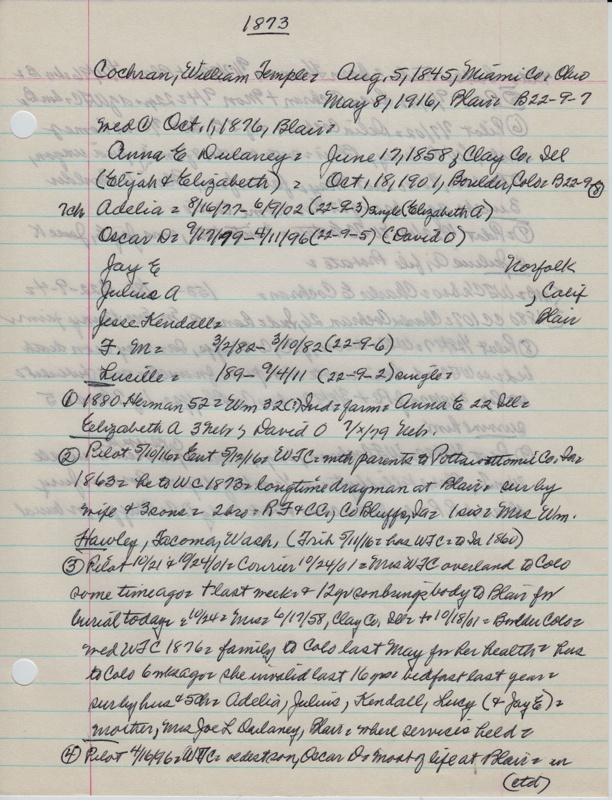 1873
Cochran, William Temple = Aug. 5, 1845, Miami Co. Ohio
May 8, 1916, Blair = B22-9-7
wed ① Oct. 1, 1876, Blair =
Anna E Dulaney = June 17, 1858, Clay Co. Ill
(Elijah & Elizabeth) = Oct. 18, 1901, Boulder, Colo = B22-9-8
7ch Adelia = 8/16/77 - 6/9/02 (22-9-3) single (Elizabeth A)
Oscar D = 9/17/79 - 4/11/96 (22-9-5) (David O)
Jay E Norfolk
Julius A , Calif
Jesse Kendall = Blair
F. M = 3/2/82 - 3/10/82 (22-9-6)
Lucille = 189 - 9/4/11 (22-9-2) single =
① 1880 Herman 52 = Wm 32(?) Ind = farm = Anna E 22 Ill =
Elizabeth A 3 Neb; David O 7/x/79 Neb.
② Pilot 5/10/16 = Ent 5/12/16 = WTC = with parents to Pottawattomie Co, Ia =
1863 = he to WC 1873 = longtime drayman at Blair = sur by
wife & 3 sons = 2 bros = R F & CC, Co Bluffs, Ia = 1 sis = Mrs Wm.
Hawley, Tacoma, Wash. (Trib 5/11/16 = has WTC = to Ia 1860)
③ Pilot 10/21 & 10/24/01 = Courier 10/24/01 = Mrs WTC overland to Colo
some time ago = + last week = & 12 yr son brings body to Blair for
burial today = 10/24 = Mrs = 6/17/58, Clay Co, Ill = to 10/18/01 = Boulder Colo =
wed WTC 1876 = family to Colo last May for her health = hus
to Colo 6 wks ago = she invalid last 16 yrs = bedfast last year =
sur by hus & 5ch = Adelia, Julius, Kendall, Lucy (& Jay E) =
mother, Mrs Joe L Dulaney, Blair = where services held =
④ Pilot 4/16/96 = WTC = oldest son, Oscar D = most of life at Blair = in
(ctd)